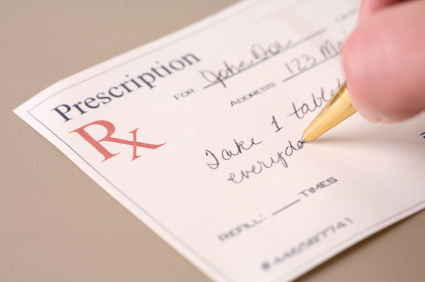 Prescription
Rx
FOR: John Doe
ADDRESS: 123 M
Take 1 tablet
everyda
REFILL: ___ TIMES
#446587741